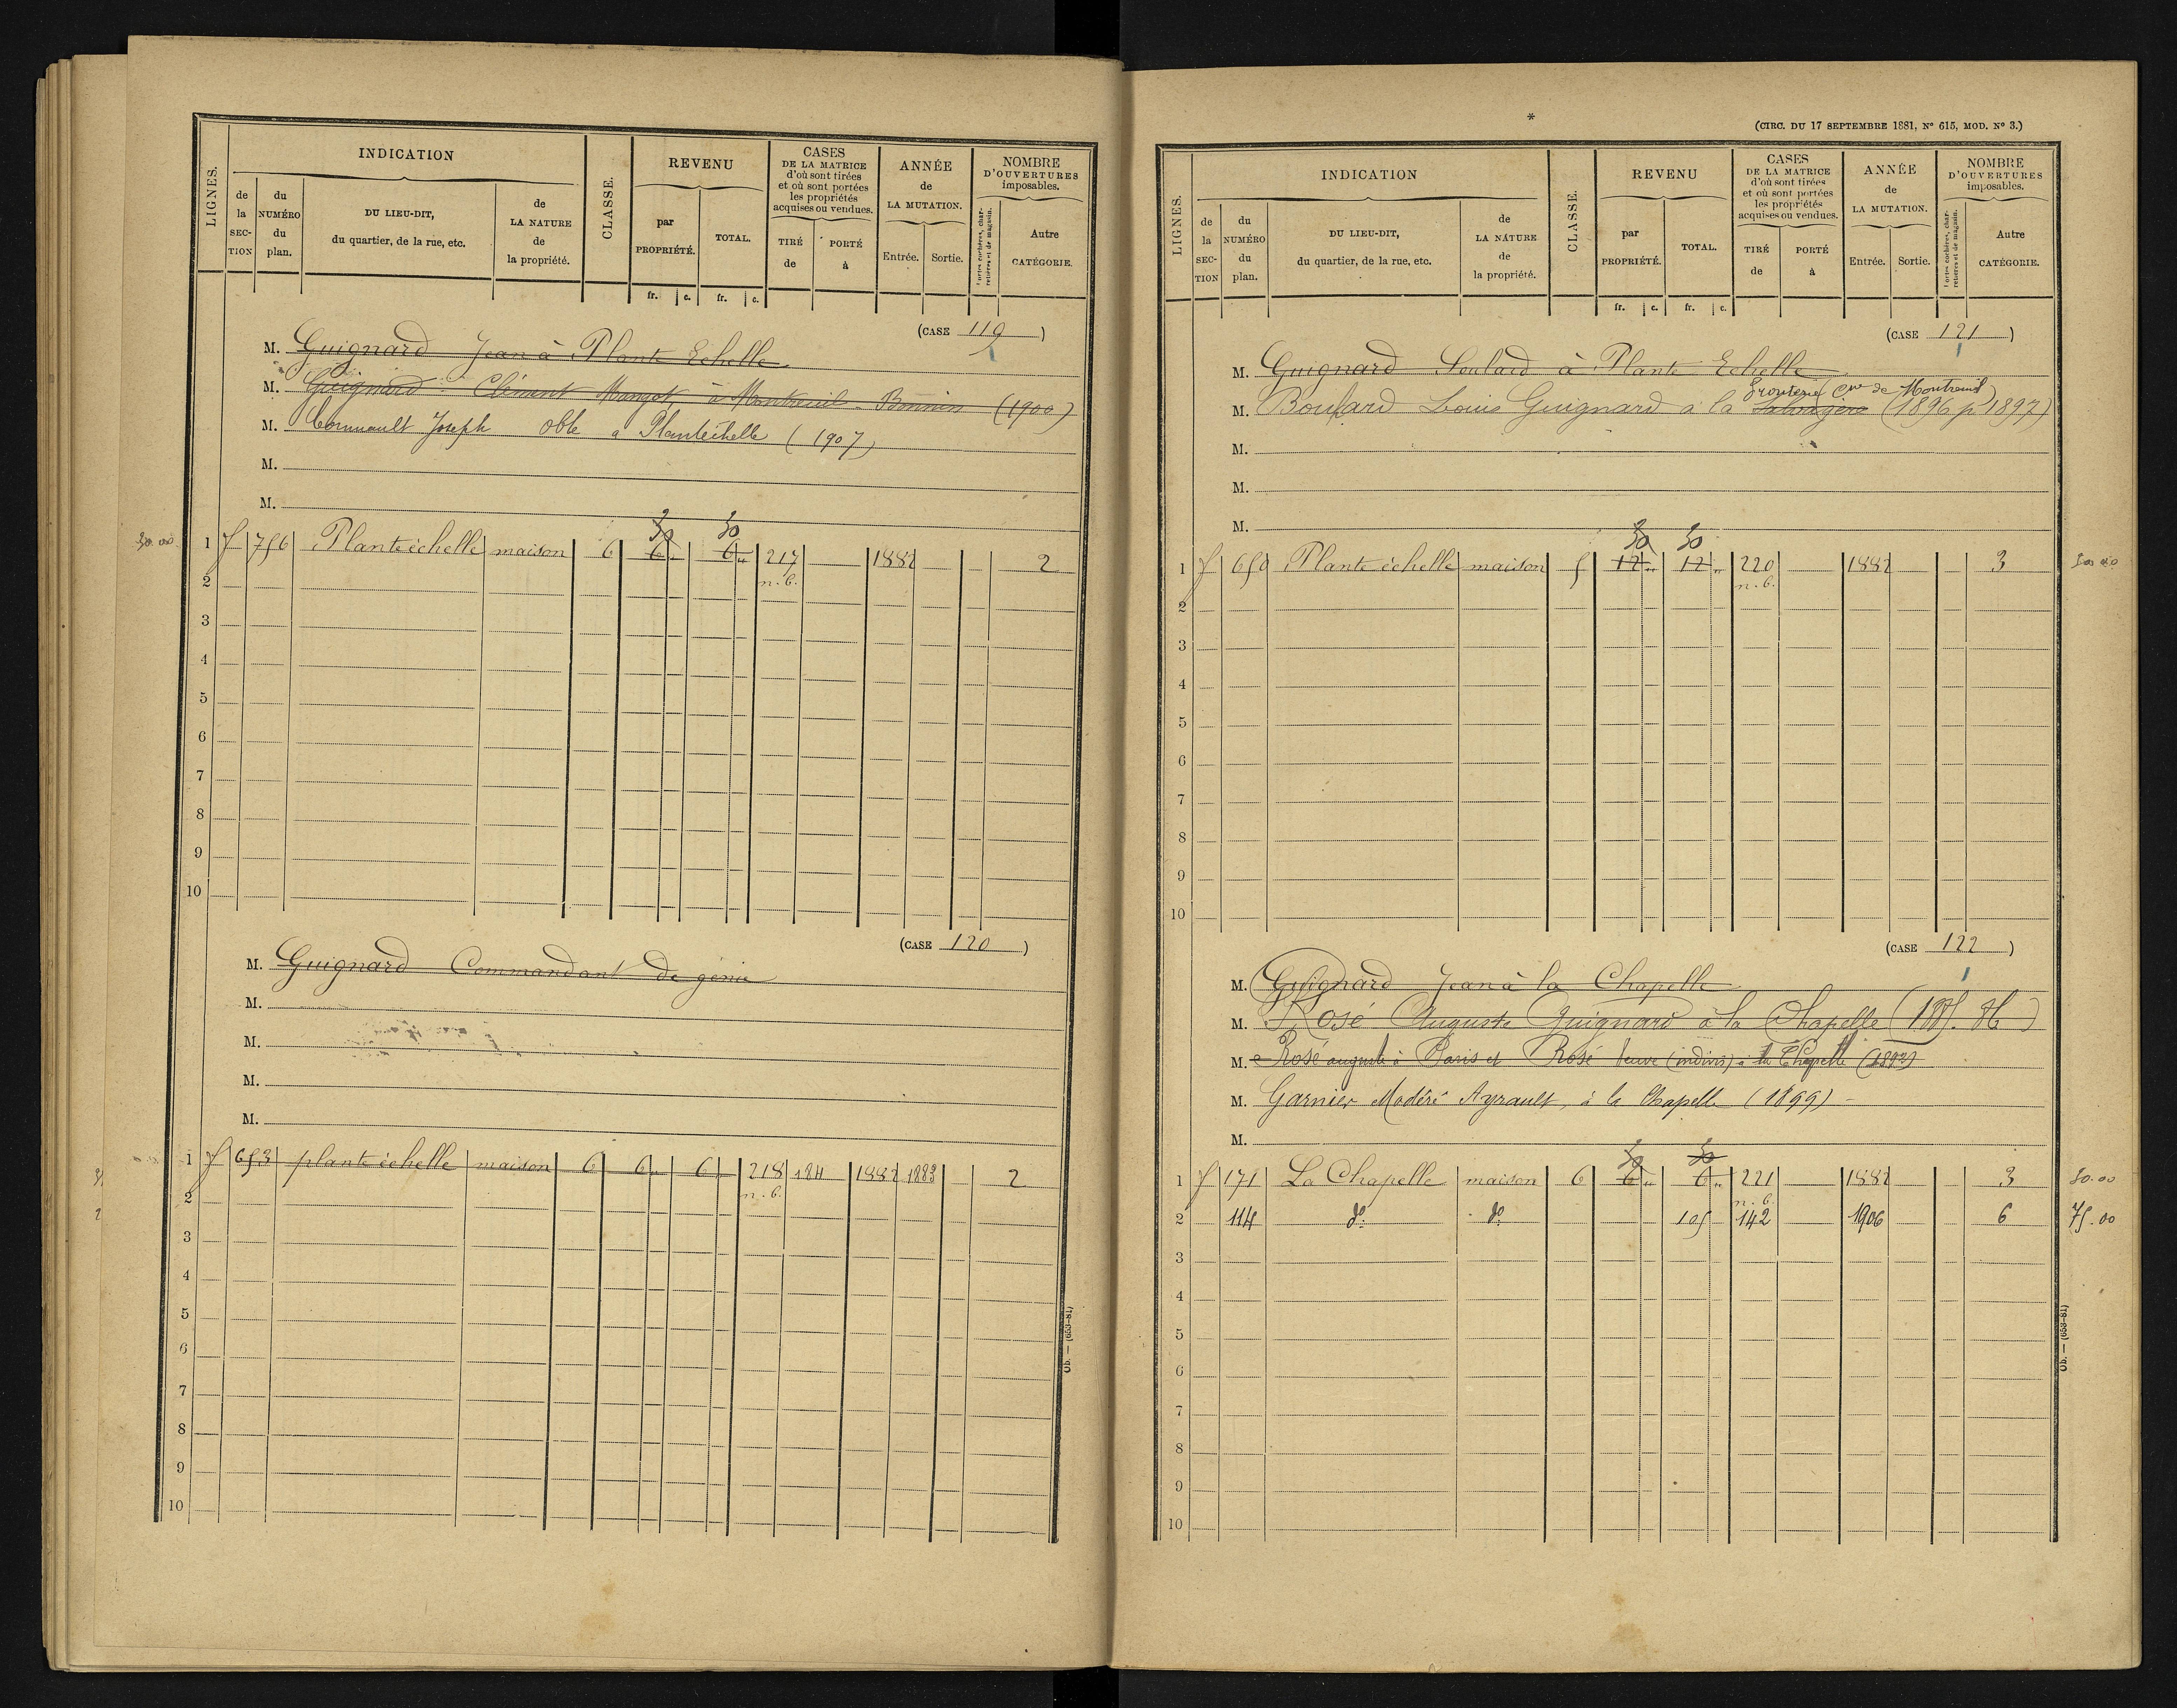 INDICATION
REVENU
CASES
DE LA MATRICE
d'où sont tirées
et où sont portées
les propriétés
acquises ou vendues.
ANNÉE
de
LA MUTATION.
NOMBRE
D'OUVERTURES
imposables.
LIGNES.
de
la
SEC-
TION
du
NUMÉRO
du
plan.
DU LIEU-DIT,
du quartier, de la rue, etc.
de
LA NATURE
de
la propriété.
CLASSE.
par
PROPRIÉTÉ.
TOTAL.
TIRÉ
de
PORTÉ
à
Entrée.
Sortie.
Portes cochères, char-
retières et de magasin.
Autre
CATÉGORIE.
fr. c. fr. c.
(CASE 119)
M. Guignard Jean à Plante Echelle
M. Guignard Clément Mangot à Montreuil-Bonnin (1900)
M. Cornuault Joseph Oble a Plantéchelle (1907)
M.
M.
30 30
30.00 1 f 756 Plante échelle maison 6 6 " 6 " 217 1882 2
n.b.
2
3
4
5
6
7
8
9
10
(CASE 120)
M. Guignard Commandant de génie
M.
M.
M.
M.
1 f 653 plante échelle maison 6 6 " 6 " 218 184 1882 1883 2
n.b.
2
3
4
5
6
7
8
9
10
Ob. — (653-81)
*
(CIRC. DU 17 SEPTEMBRE 1881, N° 615, MOD. N° 3.)
INDICATION
REVENU
CASES
DE LA MATRICE
d'où sont tirées
et où sont portées
les propriétés
acquises ou vendues.
ANNÉE
de
LA MUTATION.
NOMBRE
D'OUVERTURES
imposables.
LIGNES.
de
la
SEC-
TION
du
NUMÉRO
du
plan.
DU LIEU-DIT,
du quartier, de la rue, etc.
de
LA NATURE
de
la propriété.
CLASSE.
par
PROPRIÉTÉ.
TOTAL.
TIRÉ
de
PORTÉ
à
Entrée.
Sortie.
Portes cochères, char-
retières et de magasin.
Autre
CATÉGORIE.
fr. c. fr. c.
(CASE 121)
M. Guignard Soulard à Plante Echelle
de Montreuil
M. Boulard Louis Guignard à la (1896 p 1897)
M.
M.
M.
30 30
1 f 650 Plante échelle maison 5 12 " 12 " 220 1882 3 30.00
n.b.
2
3
4
5
6
7
8
9
10
(CASE 122)
M. Guignard Jean à la Chapelle
M. Rosé Auguste Guignard à la Chapelle (1885.86)
M. Rosé auguste à Paris et Rosé Veuve (indivis) à la Chapelle (1893)
M. Garnier Modéré Ayrault, à la Chapelle (1899)
M.
30 30
1 f 171 La Chapelle maison 6 6 " 6 " 221 1882 3 30.00
n.b.
2 114 d°: d° 105 142 1906 6 75.00
3
4
5
6
7
8
9
10
Ob. — (653-81)